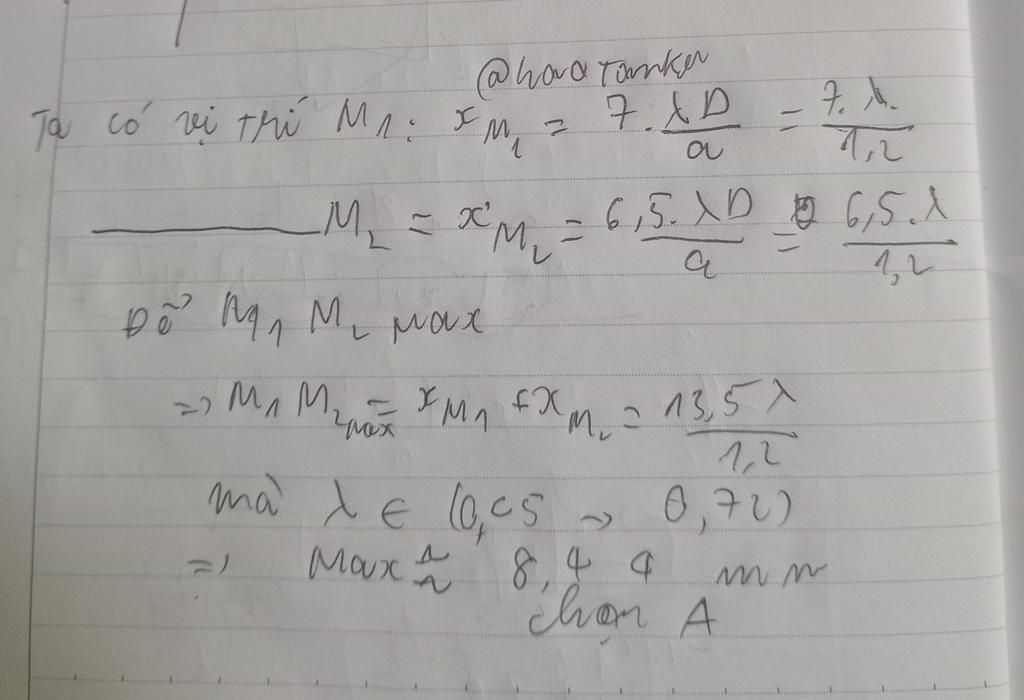 @hoatamker
Ta có vị trí M1: xM1 = 7.λD/a = 7.λ./1,2
M2 = x'M2 = 6,5.λD/a = 6,5.λ/1,2
Để M1 M2 max
=> M1 M2max = xM1 + xM2 = 13,5λ/1,2
mà λ ∈ (0,45 → 0,72)
=> Max ≈ 8,44 mm
chọn A